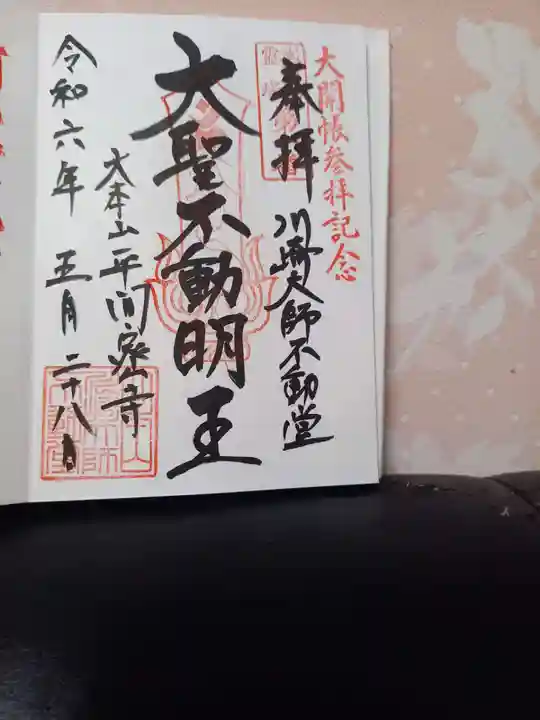 大開帳参拝記念
奉拝
川崎大師不動堂
大聖不動明王
大本山平間密寺
令和六年五月二十八日